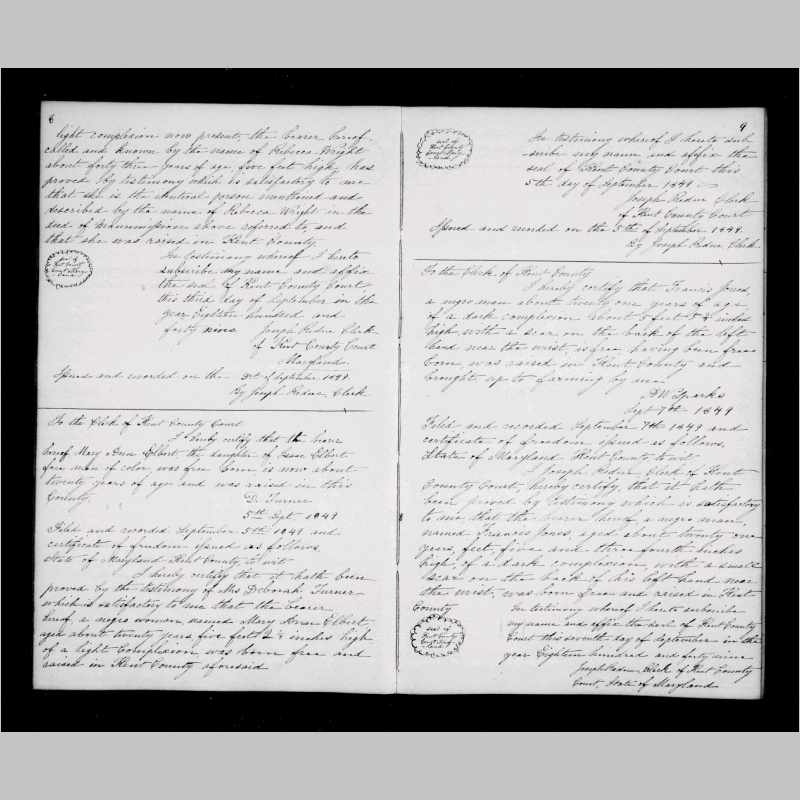 8
light complexion now present the bearer hereof
called and known by the name of Rebecca Wright
about forty three years of age five feet high has
proved by testimony which is satisfactory to me
that she is the identical person mentioned and
described by the name of Rebecca Wright in the
deed of manumission above referred to, and
that she was raised in Kent County.
In testimony whereof I hereto
subscribe my name and affix
the seal of Kent County Court
this third day of September in the
year Eighteen hundred and
forty nine Joseph Redue Clerk
of Kent County Court
Maryland.
Issued and recorded on the 3rd of September 1849.
By Joseph Redue, Clerk
To the Clerk of Kent County Court
I hereby certify that the bearer
hereof Mary Ann Elbert the daughter of Isaac Elbert
free man of color, was free born is now about
twenty years of age and was raised in this
County.
D. Turner
5th Sept 1849
Filed and recorded September 5th 1849 and
certificate of freedom issued as follows.
State of Maryland Kent County to wit
I hereby certify that it hath been
proved by the testimony of Mrs Deborah Turner
which is satisfactory to me that the bearer
hereof, a negro woman, named Mary Ann Elbert
aged about twenty years, five feet 2 inches high
of a light complexion was born free and
raised in Kent County aforesaid
9
seal of
Kent County
Court Mary
land
In testimony whereof I hereto sub
-scribe my name and affix the
seal of Kent County Court this
5th day of September 1849
Joseph Redue Clerk
of Kent County Court
Issued and recorded on the 5th of September 1849.
By Joseph Redue Clerk.
To the Clerk of Kent County
I hereby certify that Francis Jones,
a negro man about twenty one years of age
of a dark complexion about 5 feet inches
high, with a scar on the back of the left
hand near the wrist, is free, having been free
born, was raised in Kent County and
brought up to farming by me.
Sparks
Sept 7th 1849
Filed and recorded September 7th 1849 and
certificate of freedom issued as follows.
State of Maryland Kent County to wit
I Joseph Redue, Clerk of Kent
County Court, hereby certify, that it hath
been proved by testimony which is satisfactory
to me that the bearer hereof, a negro man,
named Francis Jones, aged about twenty one
years, feet, five and three fourth inches
high, of a dark complexion, with a small
scar on the back of his left hand near
the wrist, was born free and raised in Kent
County In testimony whereof I hereto subscribe
my name and affix the seal of Kent County
Court this seventh day of September in the
year Eighteen hundred and forty nine
Joseph Redue Clerk of Kent County
Court, State of Maryland